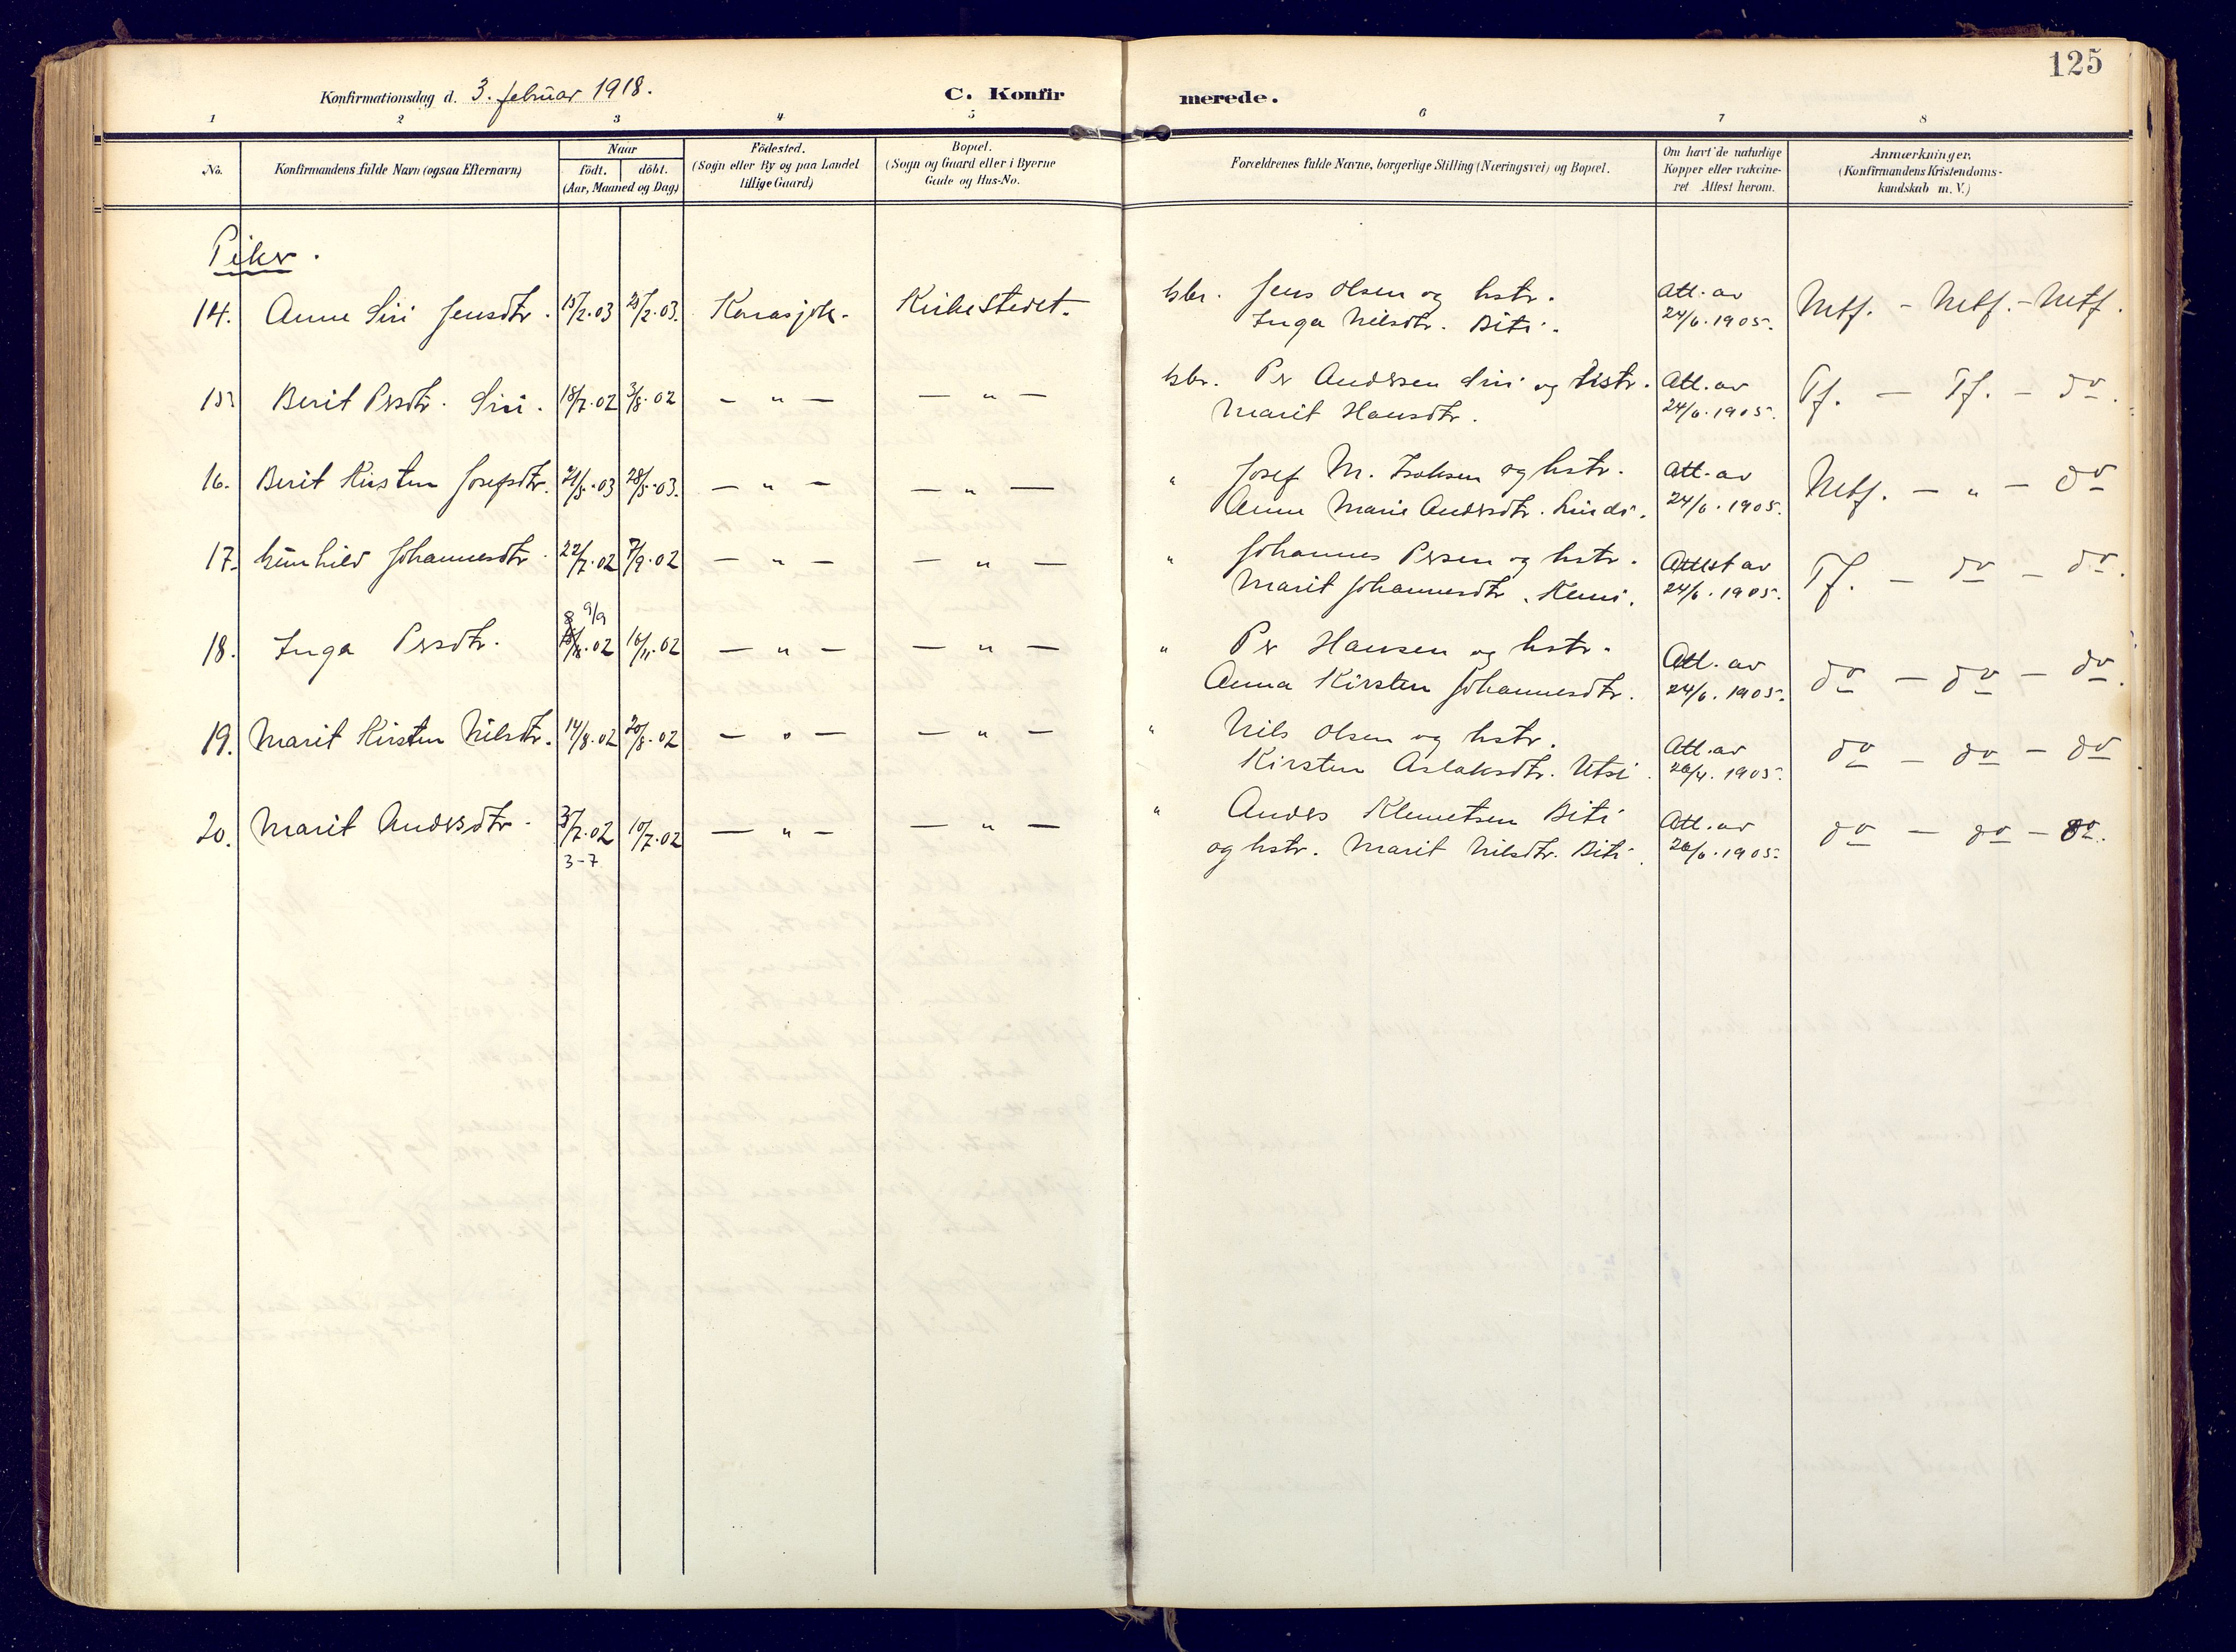 125
Konfirmationsdag d. 3. februar 1918. C. Konfirmerede.
1 2 3 4 5 6 7 8
No. Konfirmandens fulde Navn (ogsaa Efternavn) Naar födt. döbt. (Aar, Maaned og Dag) Födested. (Sogn eller By og paa Landet tillige Gaard) Bopæl. (Sogn og Gaard eller i Byerne Gade og Hus-No. Forældrenes fulde Navne, borgerlige Stilling (Næringsvei) og Bopæl. Om havt de naturlige Kopper eller vakcineret Attest herom. Anmærkninger. (Konfirmandens Kristendomskundskab m. V.)
Piker.
14. Anne Siri Jensdtr. 15/2.03 /2.03. Karasjok. Kirkestedet. Jens Olsen og hstr. Att. av Mtf. - Mtf. - Mtf.
Inga Nilsdtr. Biti. 24/6.1905.
15 Berit Persdtr. Siri. 18/7.02 3/8.02 — " — — " — Per Andersen Siri og hstr. Att. av Tf. — Tf. — do.
Marit Hansdtr. 24/6.1905.
16. Berit Kirsten Josefsdtr. 21/5.03 28/5.03. — " — — " — " Josef M. Isaksen og hstr. Att. av Mtf. — " — do
Anne Marie Andersdtr. 24/6.1905.
17. Gunhild Johannesdtr. 22/7.02 7/9.02 — " — — " — " Johannes Persen og hstr. Attest av Tf. — do — do.
Marit Johannesdtr. Kemi. 24/6.1905.
8 9/9
18. Inga Persdtr. .02 16/11.02 — " — — " — " Per Hansen og hstr. Att. av do — do — do.
Anna Kirsten Johannesdtr. 24/6.1905.
19. Marit Kirsten Nilsdtr. 14/8.02 20/8.02 — " — — " — " Nils Olsen og hstr. Att. av do — do — do
Kirsten Aslaksdtr. Utsi. 1905.
20. Marit Andersdtr. 3/7.02 10/7.02 — " — — " — " Anders Klemetsen Biti Att. av do — do — do.
3-7 og hstr. Marit Nilsdtr. Biti. 26/6.1905.